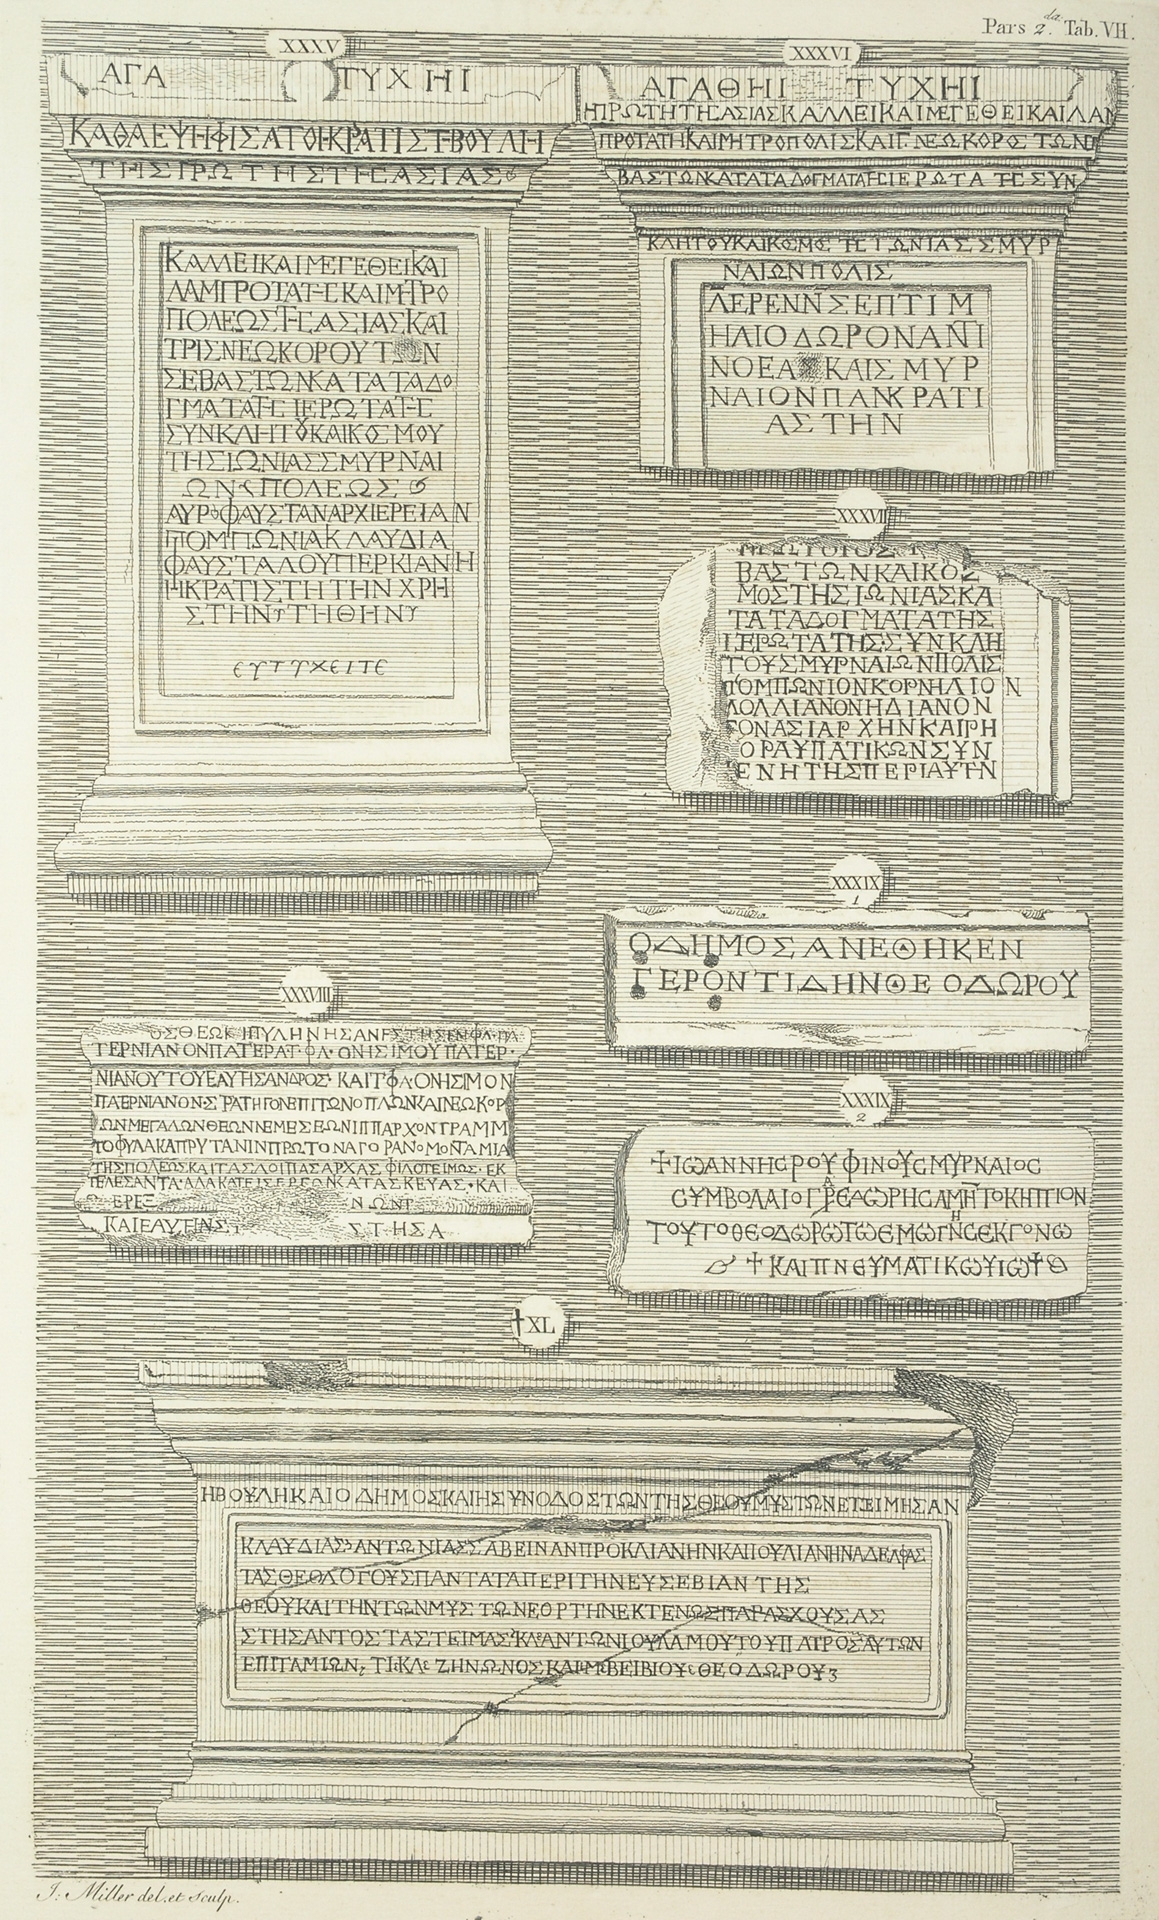 Pars 2.da Tab. VII.
XXXV
ΑΓΑ ΤΥΧΗΙ
ΚΑΘΑ ΕΨΗΦΙΣΑΤΟ Η ΚΡΑΤΙΣΤ ΒΟΥΛΗ
ΤΗΣ ΠΡΩΤΗΣ ΤΗΣ ΑΣΙΑΣ
ΚΑΛΛΕΙ ΚΑΙ ΜΕΓΕΘΕΙ ΚΑΙ
ΛΑΜΠΡΟΤΑΤΗΣ ΚΑΙ ΜΗΤΡΟ
ΠΟΛΕΩΣ ΤΗΣ ΑΣΙΑΣ ΚΑΙ
ΤΡΙΣ ΝΕΩΚΟΡΟΥ ΤΩΝ
ΣΕΒΑΣΤΩΝ ΚΑΤΑ ΤΑ ΔΟ
ΓΜΑΤΑ ΤΗΣ ΙΕΡΩΤΑΤΗΣ
ΣΥΝΚΛΗΤΟΥ ΚΑΙ ΚΟΣΜΟΥ
ΤΗΣ ΙΩΝΙΑΣ ΣΜΥΡΝΑΙ
ΩΝ ΠΟΛΕΩΣ
ΑΥΡ ΦΑΥΣΤΑΝ ΑΡΧΙΕΡΕΙΑΝ
ΠΟΜΠΩΝΙΑ ΚΛΑΥΔΙΑ
ΦΑΥΣΤΑ ΛΟΥΠΕΡΚΙΑΝΗ
Η ΚΡΑΤΙΣΤΗ ΤΗΝ ΧΡΗ
ΣΤΗΝ ΤΗΘΗΝ
ΕΥΤΥΧΕΙΤΕ
XXXVI
ΑΓΑΘΗΙ ΤΥΧΗΙ
Η ΠΡΩΤΗ ΤΗΣ ΑΣΙΑΣ ΚΑΛΛΕΙ ΚΑΙ ΜΕΓΕΘΕΙ ΚΑΙ ΛΑΜ
ΠΡΟΤΑΤΗ ΚΑΙ ΜΗΤΡΟΠΟΛΙΣ ΚΑΙ Γ ΝΕΩΚΟΡΟΣ ΤΩΝ
ΒΑΣΤΩΝ ΚΑΤΑ ΤΑ ΔΟΓΜΑΤΑ ΤΗΣ ΙΕΡΩΤΑΤΗΣ ΣΥΝ
ΚΛΗΤΟΥ ΚΑΙ ΚΟΣΜΟΣ ΤΗΣ ΙΩΝΙΑΣ ΣΜΥΡ
ΝΑΙΩΝ ΠΟΛΙΣ
ΛΕΡΕΝΝ ΣΕΠΤΙΜ
ΗΛΙΟΔΩΡΟΝ ΑΝΤΙ
ΝΟΕΑ ΚΑΙ ΣΜΥΡ
ΝΑΙΟΝ ΠΑΝΚΡΑΤΙ
ΑΣΤΗΝ
XXXVII
ΒΑΣΤΩΝ ΚΑΙ ΚΟΣ
ΜΟΣ ΤΗΣ ΙΩΝΙΑΣ ΚΑ
ΤΑ ΤΑ ΔΟΓΜΑΤΑ ΤΗΣ
ΙΕΡΩΤΑΤΗΣ ΣΥΝΚΛΗ
ΤΟΥ ΣΜΥΡΝΑΙΩΝ ΠΟΛΙΣ
ΠΟΜΠΩΝΙΟΝ ΚΟΡΝΗΛΙΟΝ
ΛΟΛΛΙΑΝΟΝ ΗΔΙΑΝΟΝ
ΓΟΝ ΑΣΙΑΡΧΗΝ ΚΑΙ ΡΗ
ΟΡΑ ΥΠΑΤΙΚΩΝ ΣΥΝ
ΓΕΝΗ ΤΗΣ ΠΕΡΙ ΑΥΤΗΝ
XXXIX
1
Ο ΔΗΜΟΣ ΑΝΕΘΗΚΕΝ
ΓΕΡΟΝΤΙΔΗΝ ΘΕΟΔΩΡΟΥ
XXXVIII
ΤΕΡΝΙΑΝΟΝ ΠΑΤΕΡΑ Τ ΦΛ ΟΝΗΣΙΜΟΥ ΠΑΤΕΡ
ΝΙΑΝΟΥ ΤΟΥ ΕΑΥΤΗΣ ΑΝΔΡΟΣ ΚΑΙ Τ ΦΛ ΟΝΗΣΙΜΟΝ
ΠΑΤΕΡΝΙΑΝΟΝ ΣΤΡΑΤΗΓΟΝ ΕΠΙ ΤΩΝ ΟΠΛΩΝ ΚΑΙ ΝΕΩΚΟΡ
ΤΩΝ ΜΕΓΑΛΩΝ ΘΕΩΝ ΝΕΜΕΣΕΩΝ ΙΠΠΑΡΧΟΝ ΓΡΑΜΜ
ΤΟΦΥΛΑΚΑ ΠΡΥΤΑΝΙΝ ΠΡΩΤΟΝ ΑΓΟΡΑΝΟΜΟΝ ΤΑΜΙΑ
ΤΗΣ ΠΟΛΕΩΣ ΚΑΙ ΤΑΣ ΛΟΙΠΑΣ ΑΡΧΑΣ ΦΙΛΟΤΕΙΜΩΣ ΕΚ
ΤΕΛΕΣΑΝΤΑ ΑΛΛΑ ΚΑΙ ΕΙΣ ΕΡΓΩΝ ΚΑΤΑΣΚΕΥΑΣ ΚΑΙ
ΕΡΕΞ ΝΩΝΤ
ΣΤΗΣΑ
XXXIX
2
✝ ΙΩΑΝΝΗϹ ΡΟΥΦΙΝΟΥ ϹΜΥΡΝΑΙΟϹ
ΤΟΥΤΟ ΘΕΟΔΩΡΩ ΤΩ ΕΜΩ ΓΝΗϹ ΕΚΓΟΝΩ
✝ ΚΑΙ ΠΝΕΥΜΑΤΙΚΩ ΥΙΩ ✝
✝XL
Η ΒΟΥΛΗ ΚΑΙ Ο ΔΗΜΟΣ ΚΑΙ Η ΣΥΝΟΔΟΣ ΤΩΝ ΤΗΣ ΘΕΟΥ ΜΥΣΤΩΝ ΕΤΕΙΜΗΣΑΝ
ΚΛΑΥΔΙΑΣ ΑΝΤΩΝΙΑΣ ΣΑΒΕΙΝΑΝ ΠΡΟΚΛΙΑΝΗΝ ΚΑΙ ΙΟΥΛΙΑΝΗΝ ΑΔΕΛΦΑΣ
ΤΑΣ ΘΕΟΛΟΓΟΥΣ ΠΑΝΤΑ ΤΑ ΠΕΡΙ ΤΗΝ ΕΥΣΕΒΙΑΝ ΤΗΣ
ΘΕΟΥ ΚΑΙ ΤΗΝ ΤΩΝ ΜΥΣΤΩΝ ΕΟΡΤΗΝ ΕΚΤΕΝΩΣ ΠΑΡΑΣΧΟΥΣΑΣ
ΣΤΗΣΑΝΤΟΣ ΤΑΣ ΤΕΙΜΑΣ ΚΛ ΑΝΤΩΝΙΟΥ ΛΑΜΟΥ ΤΟΥ ΠΑΤΡΟΣ ΑΥΤΩΝ
ΕΠΙ ΤΑΜΙΩΝ ΤΙ ΚΛ ΖΗΝΩΝΟΣ ΚΑΙ Μ ΒΕΙΒΙΟΥ ΘΕΟΔΩΡΟΥ
J: Miller del. et sculp.